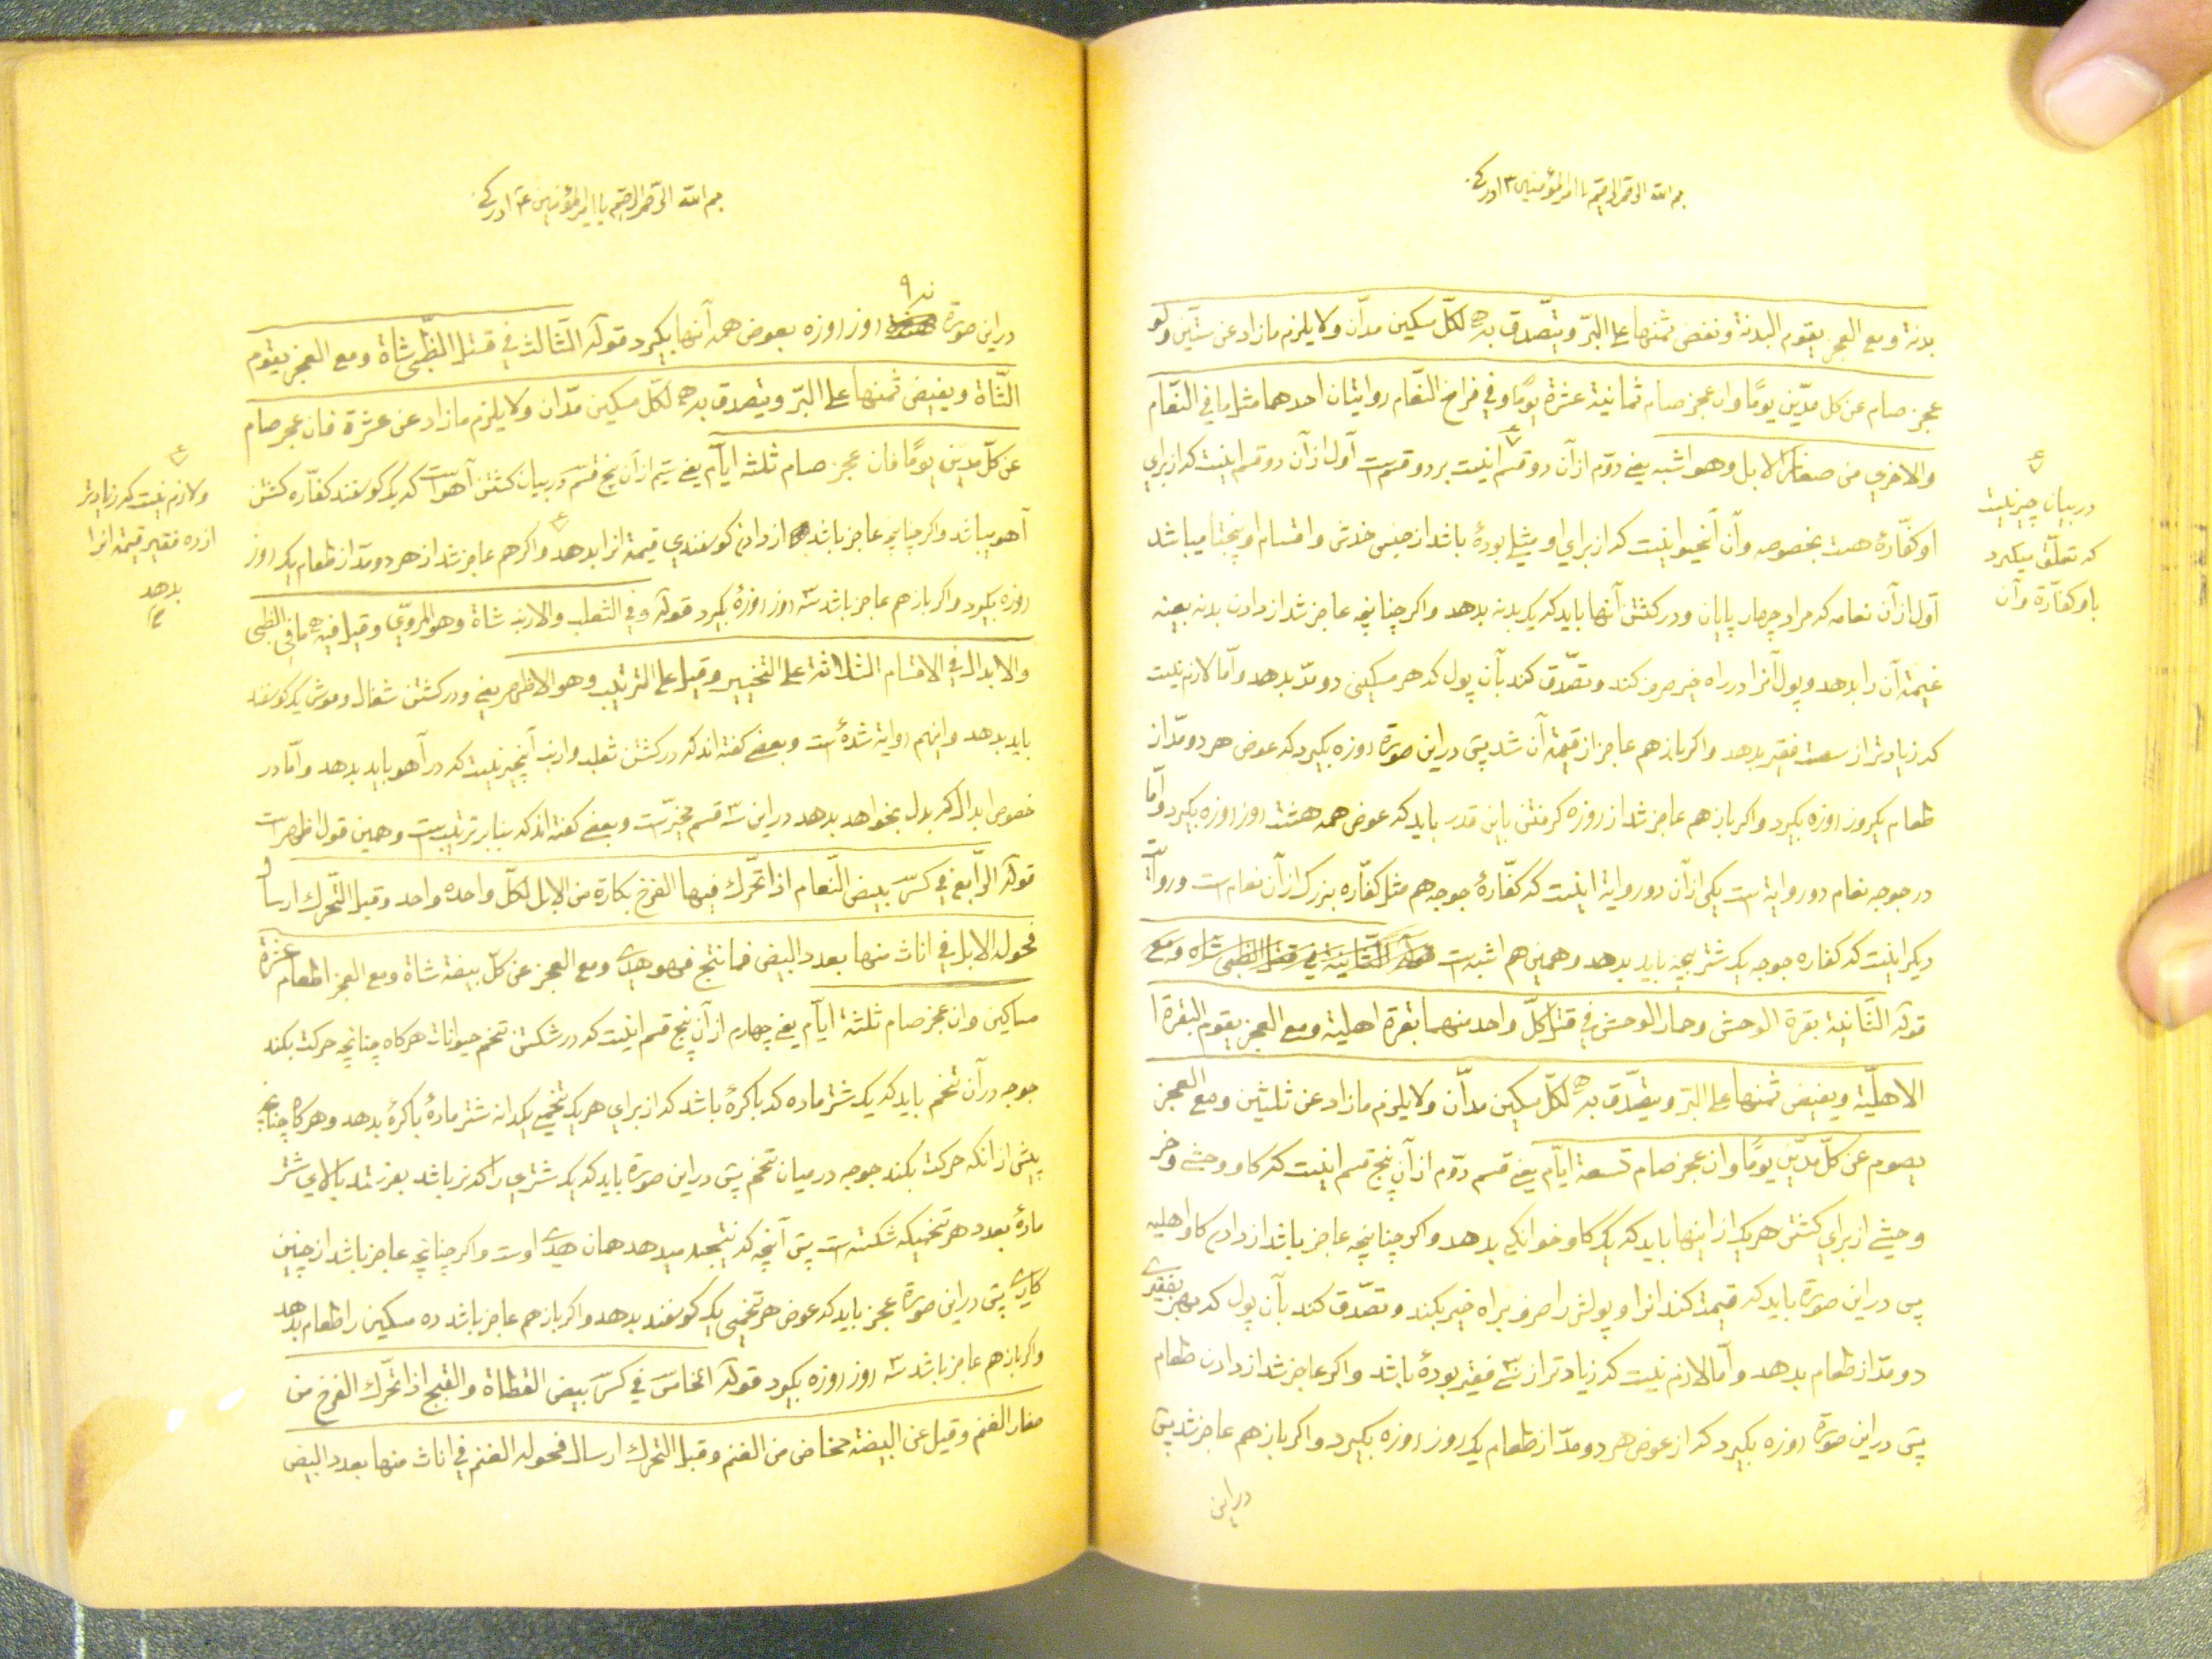 بسم الله الرحمن الرحیم یا امیرالمؤمنین ادرکنی
بدنة و مع العجز یقوم البدنة و نفض ثمنها علی البرّ و یتصدق به لکلّ مسکین مدّان ولا یلزم ما زاد عن ستّین ولو
عجز صام عن کل مدّین یومًا وان عجز صام ثمانیة عشرة یومًا وفی فراخ النّعام روایتان احدهما مثل ما فی النّعام
والاخری من صغار الابل وهو اشبه یعنی دوّم ازآن دو قسم اینست بر دو قسم است اول از آن دو قسم اینست که از برای
در بیان چیزیست
که تعلّق میگیرد
باو کفّارة وآن
او کفّارهٔ هست بخصوصه وآن آنحیوانیست که از برای او مثلی بودهٔ باشد از جنس خدش واقسام او پنجتا میباشد
اول از آن نعامه که مراد چهار پایان و در کشتن آنها باید که یک بدنه بدهد واکر چنانچه عاجز شد از دادن بدنه یعنه
قیمة آن را بدهد و پول آنرا در راه خیر صرف کند و تصدّق کند بآن پول که هر مسکینی دو مدّ بدهد وامّا لازم نیست
که زیادتر از شصت فقیر بدهد واکر بازهم عاجز از قیمة آن شد پس دراین صورة روزه بکیرد که عوض هر دو مدّ از
طعام یکروز روزه بکیرد واکر بازهم عاجز شد از روزه کرفتن باین قدر باید که عوض همه هشت روز روزه بکیرد وامّا
در جوجه نعام دو روایة است یکی ازآن دو روایة اینست که کفّارهٔ جوجه هم مثل کفّاره بزرک از آن نعام است و روایة
دیکر اینست که کفاره جوجه یک شتر بچه باید بدهد و همین هم اشبه است قوله الثّانیة فی قتل الظبی شاه و مع
قوله الثّانیة بقرة الوحش و حمار الوحش فی قتل کلّ واحد منهما بقرة اهلیة ومع العجز یقوم البقرة
الاهلیّة ویفیض ثمنها علی البرّ و یتصدّق به لکلّ مسکین مدّان ولا یلزم ما زاد عن ثلثین ومع العجز
یصوم عن کلّ مدّین یومًا وان عجز صام تسعة ایّام یعنی قسم دوّم از آن پنج قسم اینست که کاو وحشی وخر
وحشی از برای کشتن هر یک از اینها باید که یک کاو خوانکی بدهد واکر چنانچه عاجز باشد از دادن کاو اهلیه
پس دراین صورة باید که قیمة کند انرا و پولش را صرف براه خیر بکند و تصدّق کند بآن پول که بهر فقیری
دو مدّ از طعام بدهد وامّا لازم نیست که زیادتر از سی فقیر بودهٔ باشد واکر عاجز شد از دادن طعام
پس دراین صورة روزه بکیرد که از عوض هر دو مدّ از طعام یک روز روزه بکیرد واکر بازهم عاجز شد پس
دراین
بسم الله الرحمن الرحیم یا امیرالمؤمنین ادرکنی
نه ۹
دراین صورة روز روزه بعوض همه آنها بکیرد قوله الثّالث فی قتل الظّبی شاة و مع العجز یقوم
الشّاة ویفیض ثمنها علی البرّ و یتصدق به لکلّ مسکین مدّان ولا یلزم ما زاد عن عشرة فان عجز صام
عن کلّ مدین یومًا فان عجز صام ثلثه ایّام یعنی سیّم از آن پنج قسم در بیان کشتن آهو است که یک کوسفند کفّاره کشتن
آهو میباشد واکر چنانچه عاجز باشد از دادن کوسفندی قیمة انرا بدهد واکر هم عاجز شد از هر دو مدّ از طعام یک روز
ولازم نیست که زیادتر
از ده فقیر قیمة انرا
بدهد
روزه بکیرد واکر بازهم عاجز باشد سه روز روزهٔ بکیرد قوله وفی الثعلب والارنب شاة وهو المرویّ وقیل فیه ما فی الظبی
والابدال فی الاقسام الثلاثة علی التخییر و قیل علی الترتیب وهو الاظهر یعنی و در کشتن شغال و موش یک کوسفند
باید بدهد واینهم روایة شدهٔ است و بعضی کفته اند که در کشتن ثعلب و ارنب آنچیزیست که در آهو باید بدهد وامّا در
خصوص ابدال که بدل بخواهد بدهد دراین سه قسم مخیّر است و بعضی کفته اند که بنا بر ترتیب است و همین قول اظهر است
قوله الرّابع فی کسر بیض النّعام اذا تحّرک فیها الفرخ بکارة من الابل لکلّ واحده واحد و قبل التّحرک ارسال
فحولة الابل فی اناث منها بعدد البیض فما نتج فهو هدی ومع العجز عن کلّ بیضة شاة ومع العجز اطعام عشرة
مساکین وان عجز صام ثلثة ایّام یعنی چهارم از آن پنج قسم اینست که در شکستن تخم حیوانات هرکاه چنانچه حرکت بکند
جوجه درآن تخم باید که یک شتر ماده که باکرهٔ باشد که از برای هر یک تخمی یکدانه شتر مادهٔ باکرهٔ بدهد وهرکاه چنانچه
پیش از آنکه حرکت بکند جوجه در میان تخم پس دراین صورة باید که یک شتری را که نر باشد بفرستد بالای شتر
مادهٔ بعدد هر تخمیکه شکسته است پس آنچه که نتیجه میدهد همان هدی اوست واکر چنانچه عاجز باشد از چنین
کاری پس دراین صورة عجز باید که عوض هر تخمی یک کوسفند بدهد واکر بازهم عاجز باشد ده مسکین را طعام بدهد
واکر بازهم عاجز باشد سه روز روزه بکیرد قوله الخامس فی کسر بیض القطاة والقبج اذا تحّرک الفرخ من
صغار الغنم وقیل عن البیضة مخاض من الغنم وقبل التحرک ارسال فحولة الغنم فی اناث منها بعدد البیض